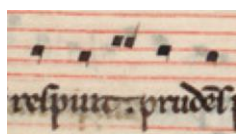 reſpuit . prudēſ